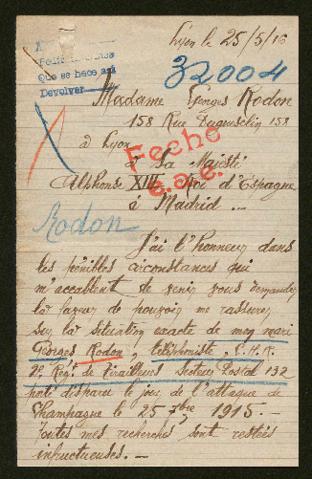 Lyon le 25/5/16
que se hace así
Devolver
32004
Madame Georges Rodon
158 Rue Duguesclin 158
à Lyon
Fecho
à Sa Majesté
Alphonse XIII Roi d'Espagne
e.a.e.
à Madrid
Rodon
J'ai l'honneur dans
les pénibles circonstances qui
m'accablent de venir vous demander
la faveur de pouvoir me rassurer
sur la situation exacte de mon mari
Georges Rodon, téléphoniste, C.H.R.
2e Rég. de Tirailleurs Secteur Postal 132
porté disparu le jour de l'attaque de
Champagne le 25 7bre 1915. -
Toutes mes recherches sont restées
infructueuses. -